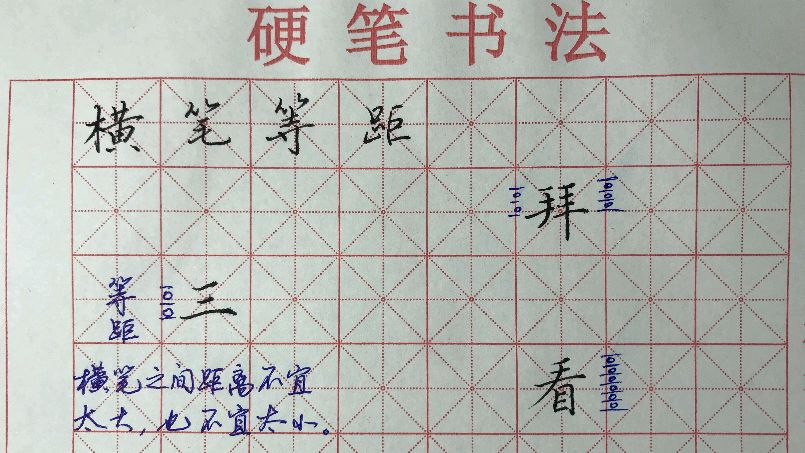 硬笔书法
横笔等距
拜
等距
三
横笔之间距离不宜
太大,也不宜太小。
看